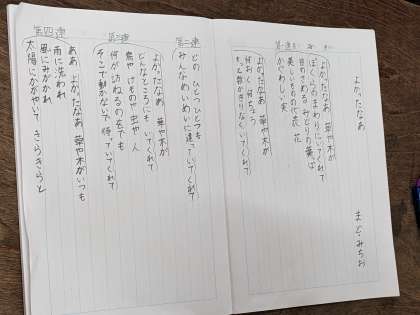 よかったなあ
まど・みちお
よかったなあ 草や木が
ぼくらの まわりに いてくれて
目のさめる みどりの葉っぱ
美しいものの代表 花
かぐわしい実
よかったなあ 草や木が
何おく 何ちょう
もっと数かぎりなく いてくれて
どの ひとつひとつも
みんな めいめいに違っていてくれて
よかったなあ 草や木が
どんなところにも いてくれて
鳥や けものや 虫や 人
何が訪ねるのをでも
そこで動かないで 待っていてくれて
第四連
ああ よかったなあ 草や木がいつも
雨に洗われ
風にみがかれ
太陽にかがやいて きらきらと